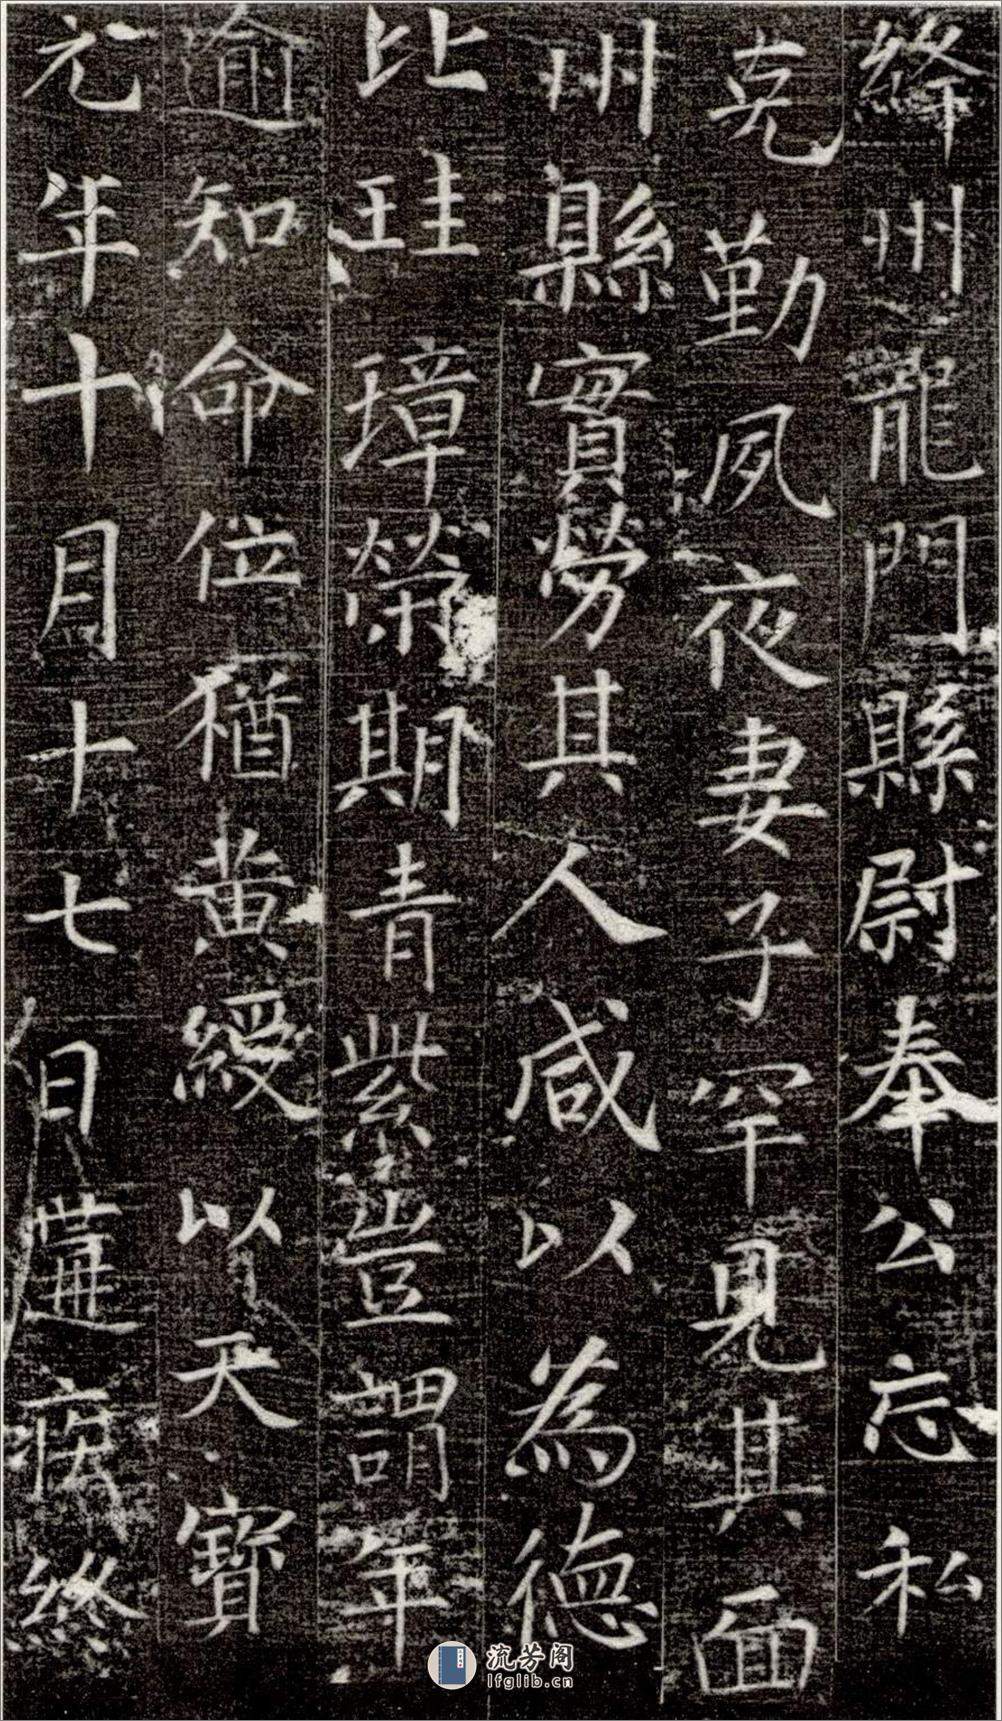 絳州龍門縣尉奉公忘私
克勤夙夜妻子罕見其面
州縣實勞其人咸以為德
比珪璋榮期青紫豈謂年
逾知命位猶黃綬以天寶
元年十月十七日遘疾終
流芳阁
lfglib.cn